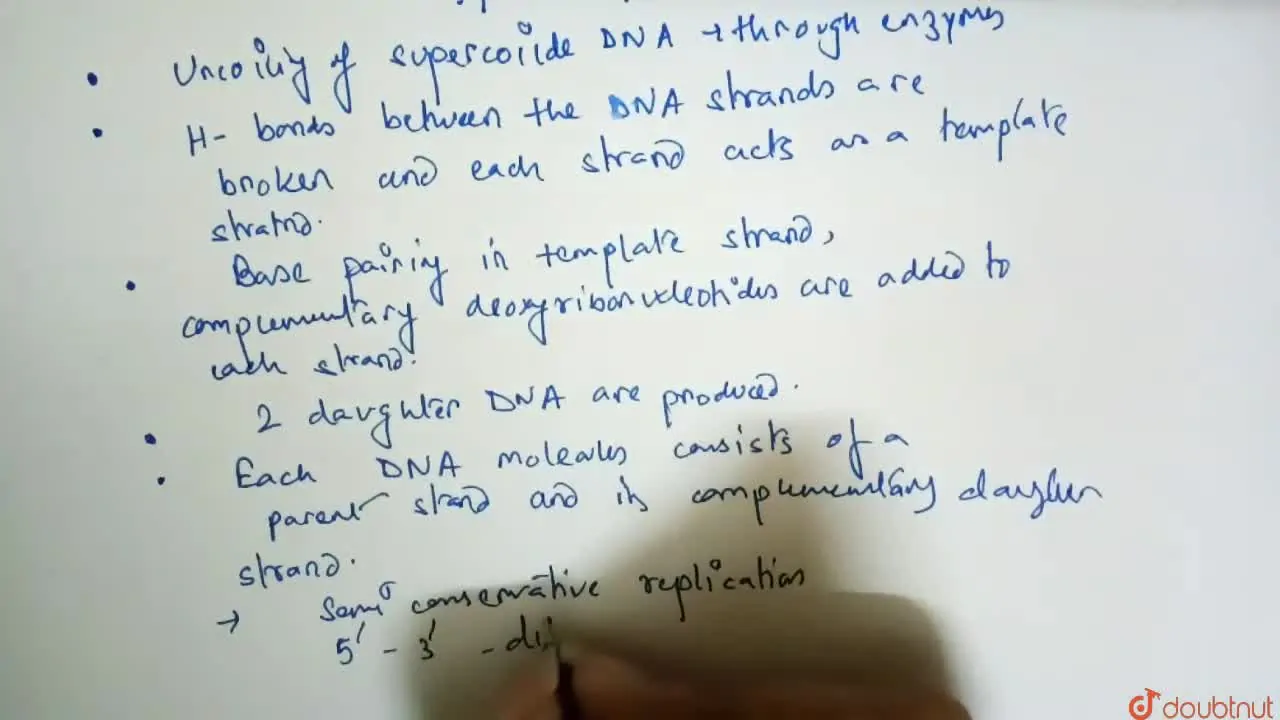 • Uncoiling of supercoilde DNA → through enzymes
• H- bonds between the DNA strands are
broken and each strand acts as a template
stratnd.
• Base pairing in template strand,
complementary deoxyribonucleotides are added to
each strand.
• 2 daughter DNA are produced.
• Each DNA molecules consists of a
parent strand and its complementary daughter
strand.
→ Semi conservative replication
5' - 3' - di
doubtnut